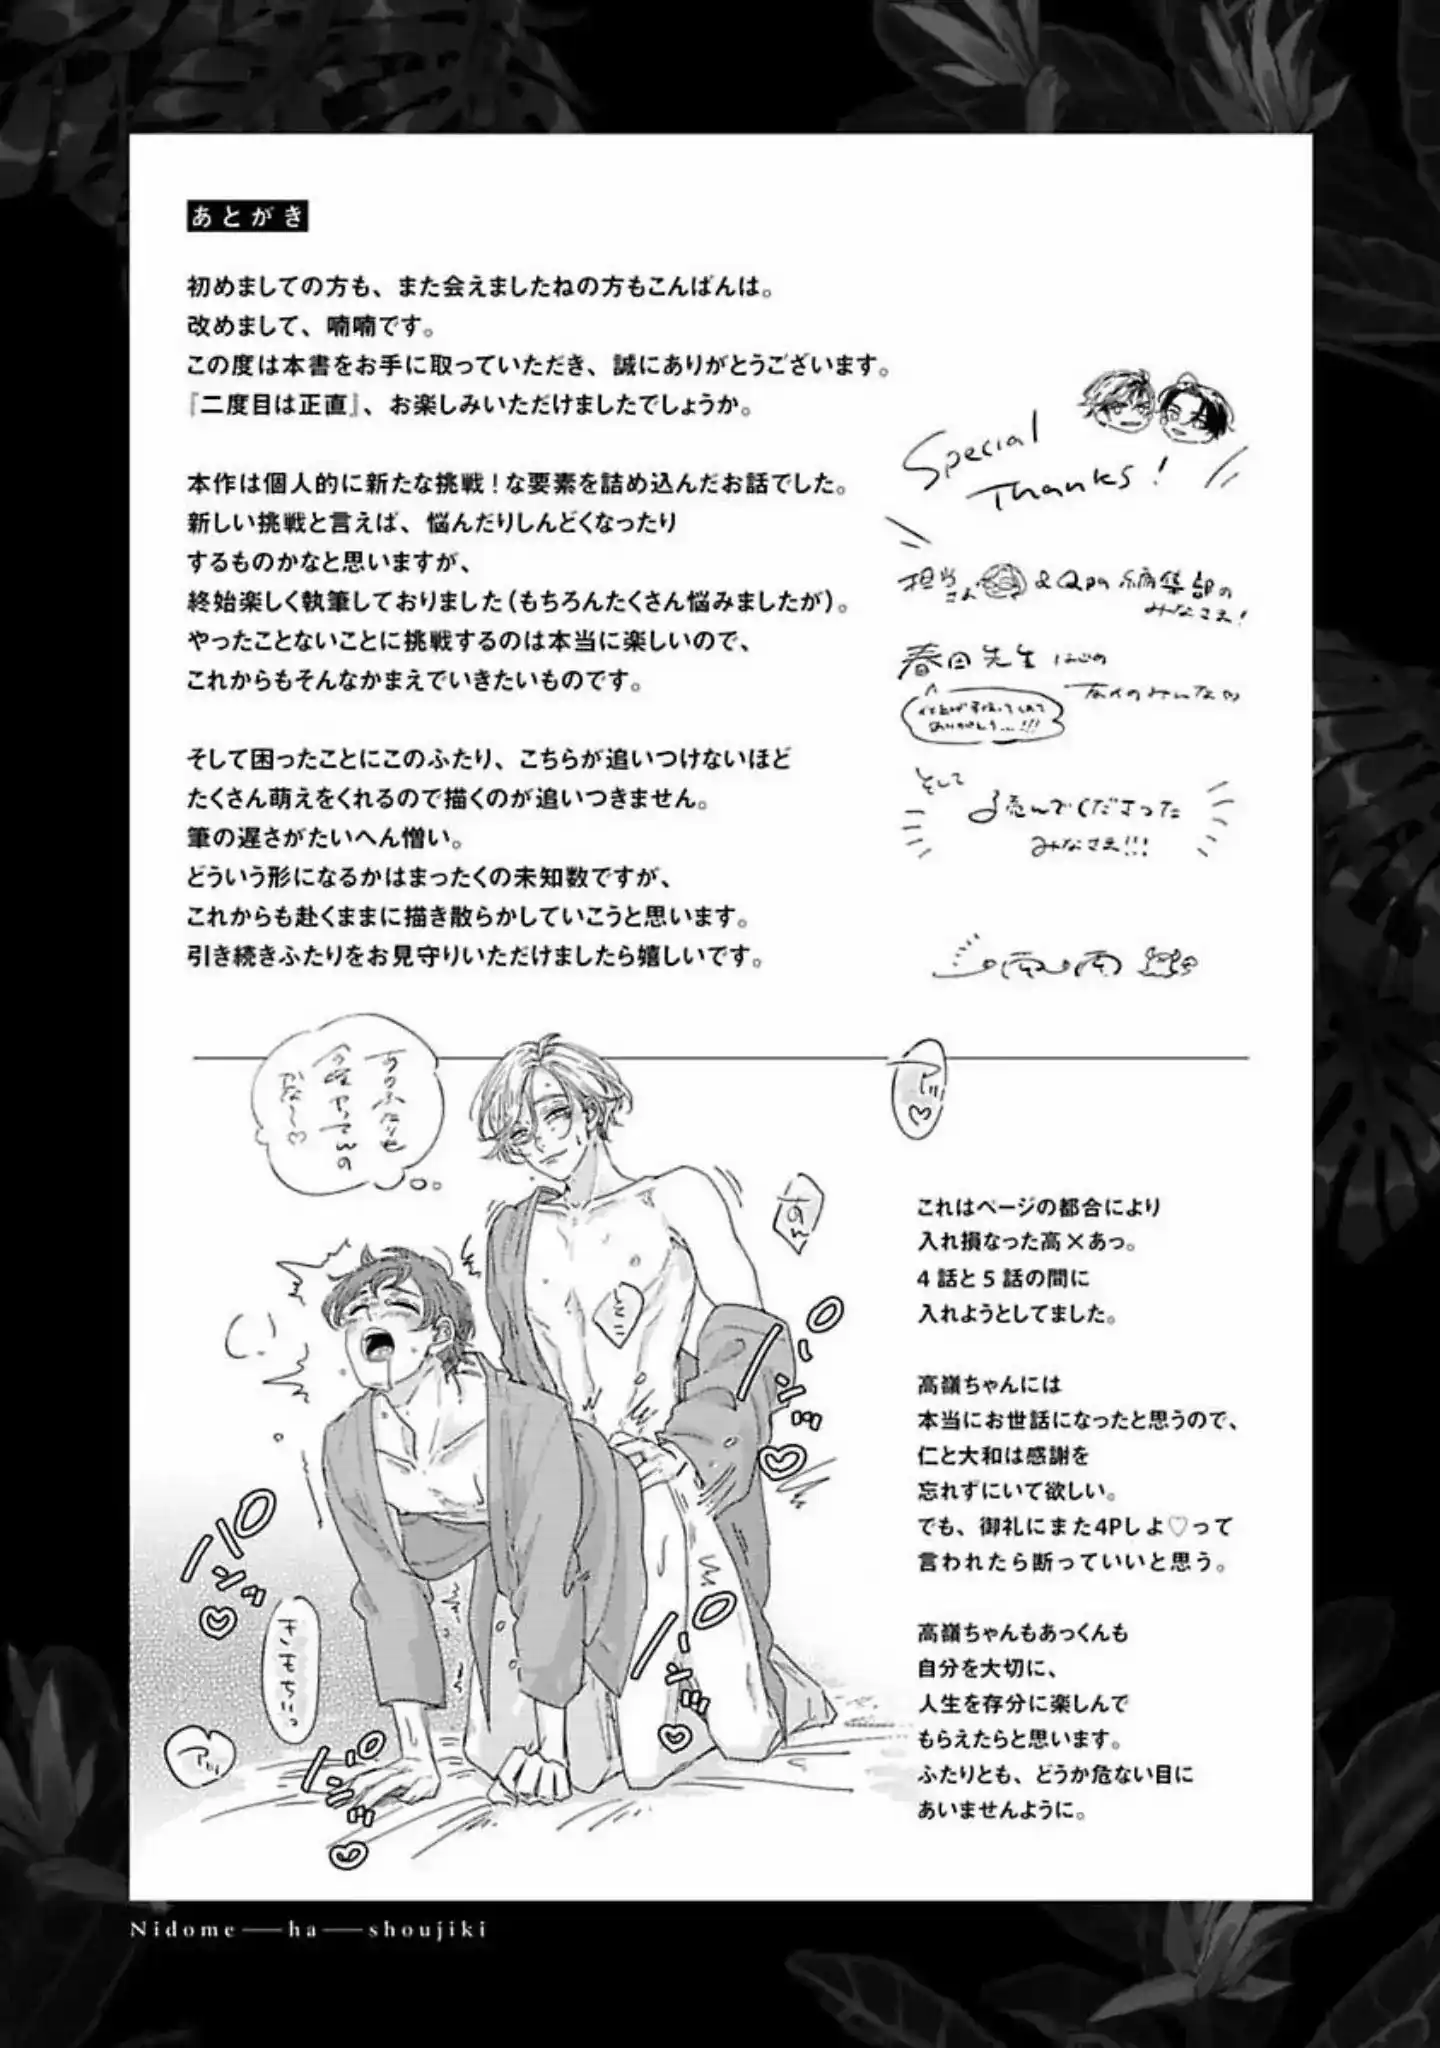 あとがき
初めましての方も、また会えましたねの方もこんばんは。
改めまして、喃喃です。
この度は本書をお手に取っていただき、誠にありがとうございます。
『二度目は正直』、お楽しみいただけましたでしょうか。
本作は個人的に新たな挑戦！な要素を詰め込んだお話でした。
新しい挑戦と言えば、悩んだりしんどくなったり
するものかなと思いますが、
終始楽しく執筆しておりました（もちろんたくさん悩みましたが）。
やったことないことに挑戦するのは本当に楽しいので、
これからもそんなかまえでいきたいものです。
そして困ったことにこのふたり、こちらが追いつけないほど
たくさん萌えをくれるので描くのが追いつきません。
筆の遅さがたいへん憎い。
どういう形になるかはまったくの未知数ですが、
これからも赴くままに描き散らかしていこうと思います。
引き続きふたりをお見守りいただけましたら嬉しいです。
Special
Thanks!
担当さん
&Qpa編集部の
みなさま!
春田先生 はじめ
友人のみんな♡
仕上げ手伝ってくれて
ありがとう…!!!
そして
読んでくださった
みなさま!!!
喃喃
あのふたりも
今頃ヤってんの
かな〜♡
アッ♡
きもちいっ
アッ
パンッ
パンッ
パンッ
これはページの都合により
入れ損なった高×あっ。
4話と5話の間に
入れようとしてました。
高嶺ちゃんには
本当にお世話になったと思うので、
仁と大和は感謝を
忘れずにいて欲しい。
でも、御礼にまた4Pしよ♡って
言われたら断っていいと思う。
高嶺ちゃんもあっくんも
自分を大切に、
人生を存分に楽しんで
もらえたらと思います。
ふたりとも、どうか危ない目に
あいませんように。
Nidome—ha—shoujiki